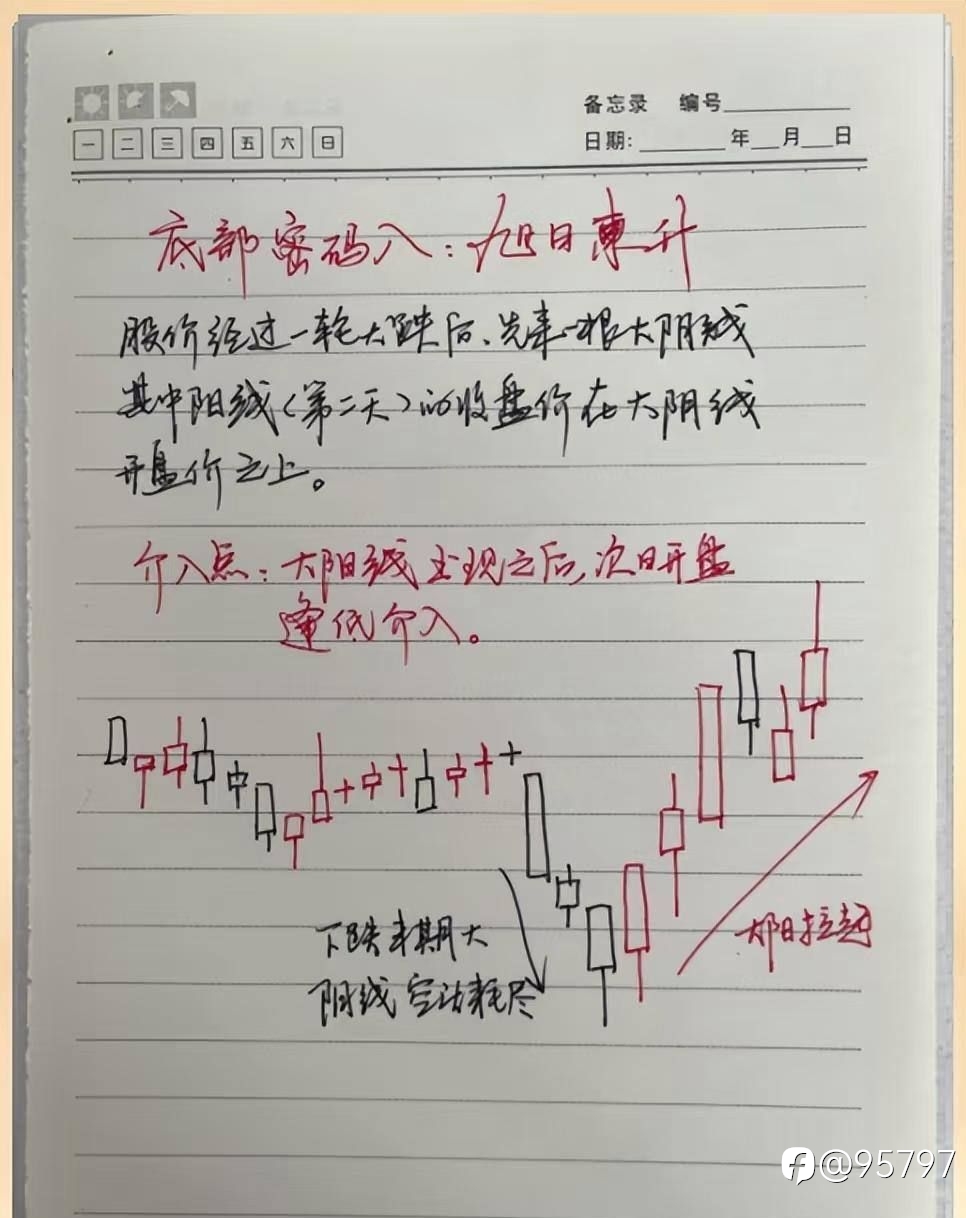 备忘录 编号
一 二 三 四 五 六 日
日期: 年 月 日
底部密码八:旭日東升
股价经过一轮大跌后、先来一根大阴线
其中阳线(第二天)的收盘价在大阴线
开盘价之上。
介入点:大阳线出现之后,次日开盘
逢低介入。
下跌末期大
阴线 空方耗尽
大阳拉起
@95797